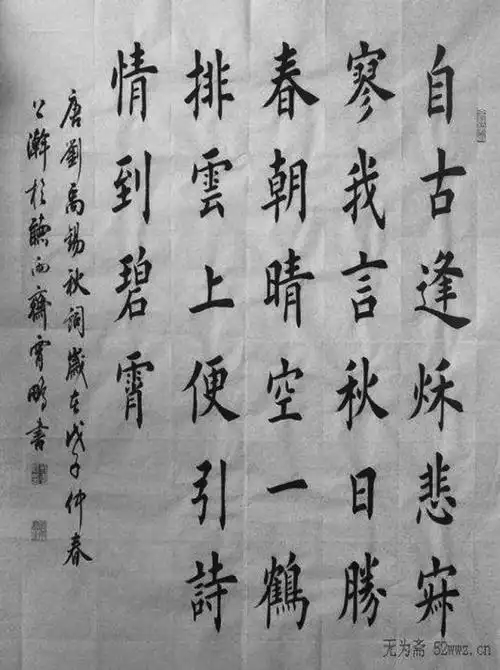 自古逢秌悲寂
寥我言秋日勝
春朝晴空一鶴
排雲上便引詩
情到碧霄
唐劉禹錫秋詞歲在戊子仲春
瀚於聽雨齋宵鵬書
无为斋 52wwz.cn